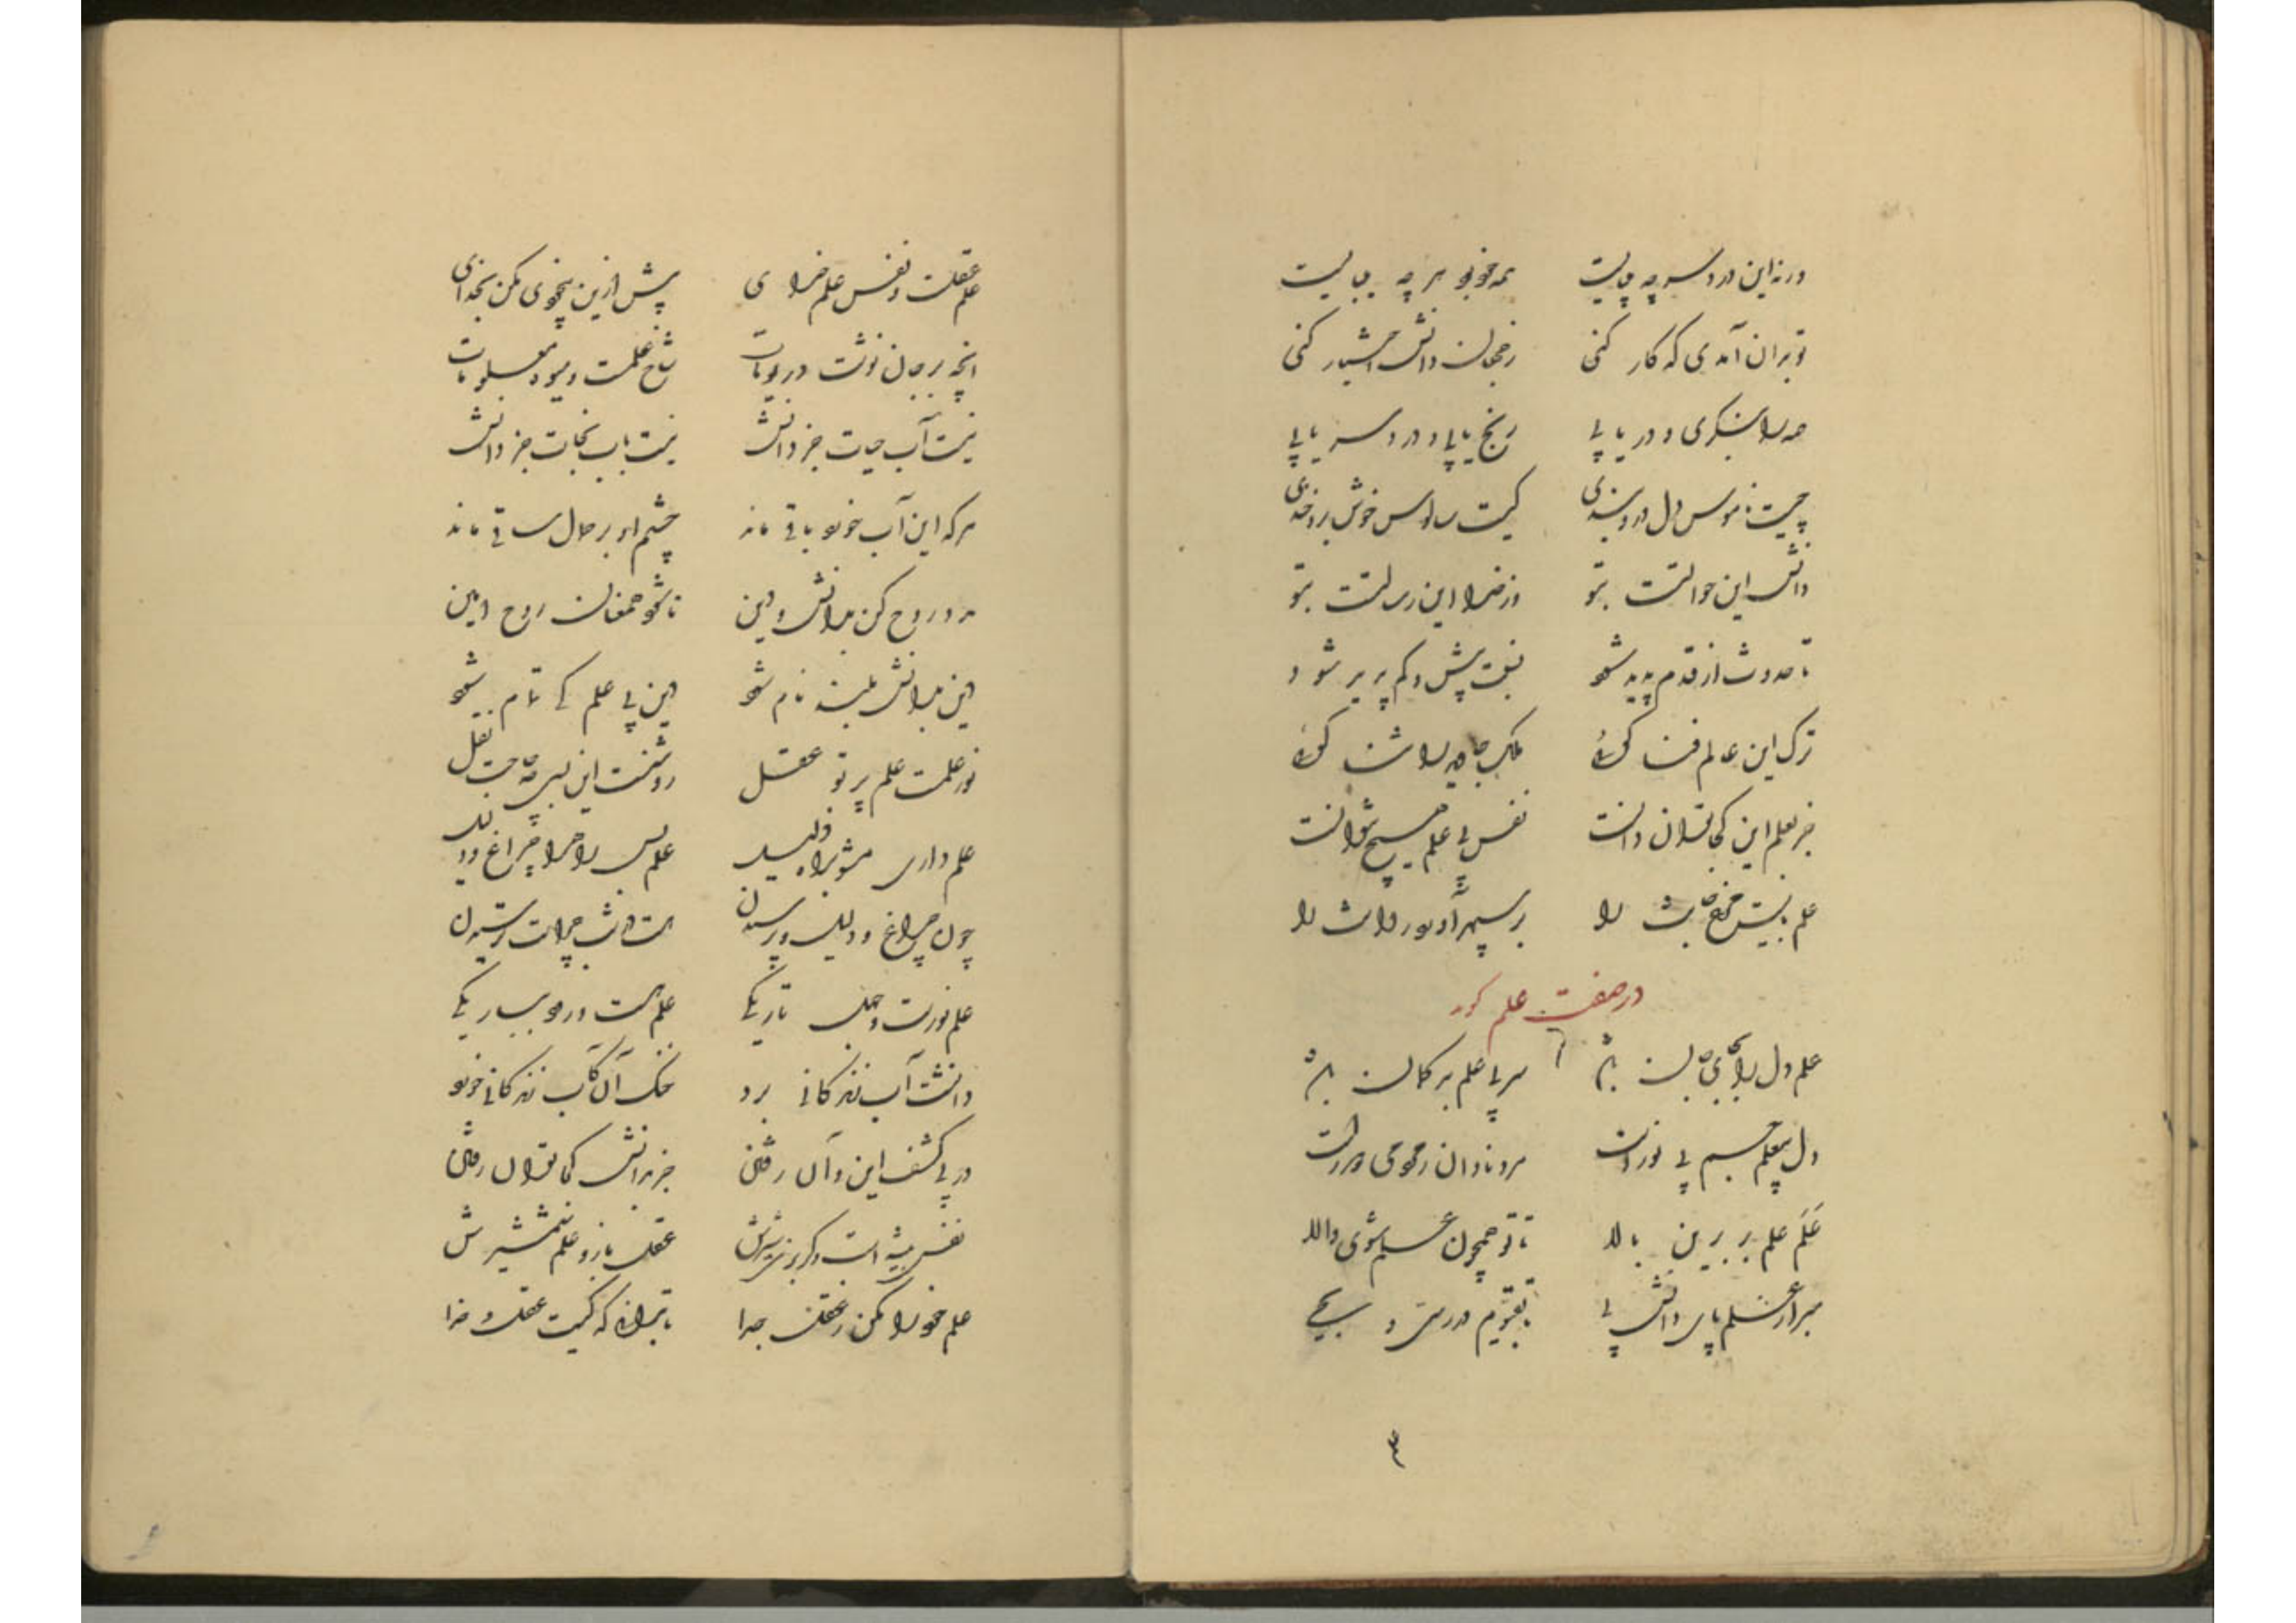 ورنه این دردسر چه می‌بایست همه خود بود هر چه می‌بایست
تو بدان آمدی که کار کنی زین جهان دانش اختیار کنی
همه را بنگری و دریابی رنج یابی و دردسر یابی
چیست ناموس دل درو بندی کیست سالوس خوش برو خندی
دانش این حوالتست بتو وز خدا این رسالتست بتو
تا حدوث از قدم پدید شود نیک و بد بیش و کم پدید شود
ترک این عالم فسانه کنی ملک جاوید را نشانه کنی
جز بعلم این کجا توان دانست نفس بی علم هیچ نتوانست
علم بالست مرغ جانت را بر سپهر او برد روانت را
در صفت علم گوید
علم دل را بجای جان باشد سر بی علم بدگمان باشد
دل بی علم چشم بی نورست مرد نادان ز مردمی دورست
علم علم بر برین بالا تا تو چون علم شوی والا
مبر از علم پای دانش پی تا بقیوم در رسی و بحی
علم عقلست و نفس علم خدای بیش ازین بیخودی مکن بخدای
آنچه بر جان نوشت در تو نبات شاخ علمست و میوه معلومات
نیست آب حیات جز دانش نیست باب نجات جز دانش
هر که این آب خورد باقی ماند چشم او بر جمال ساقی ماند
مدد روح کن بدانش و دین تا شود همعنان روح امین
دین بدانش بلند نام شود دین بی علم کی تمام شود
نور علمست علم پرتو عقل روشنست این سخن چه حاجت نقل
علم داری مشو براه ذلیل علم بس راه را چراغ و دلیل
چون چراغ و دلیل و پرسیدن هست دانش چراست ترسیدن
علم نورست و جهل تاریکی علم راهت برد بباریکی
دانشت آب زندگانی برد خنک آن کآب زندگانی خورد
در پی کشف این و آن رفتن جز بدانش کجا توان رفتن
نفس بیشه است و گربزی شیرش عقل بازو و علم شمشیرش
علم خود را مکن ز عقل جدا تا بدانی که کیست عقل و خدا